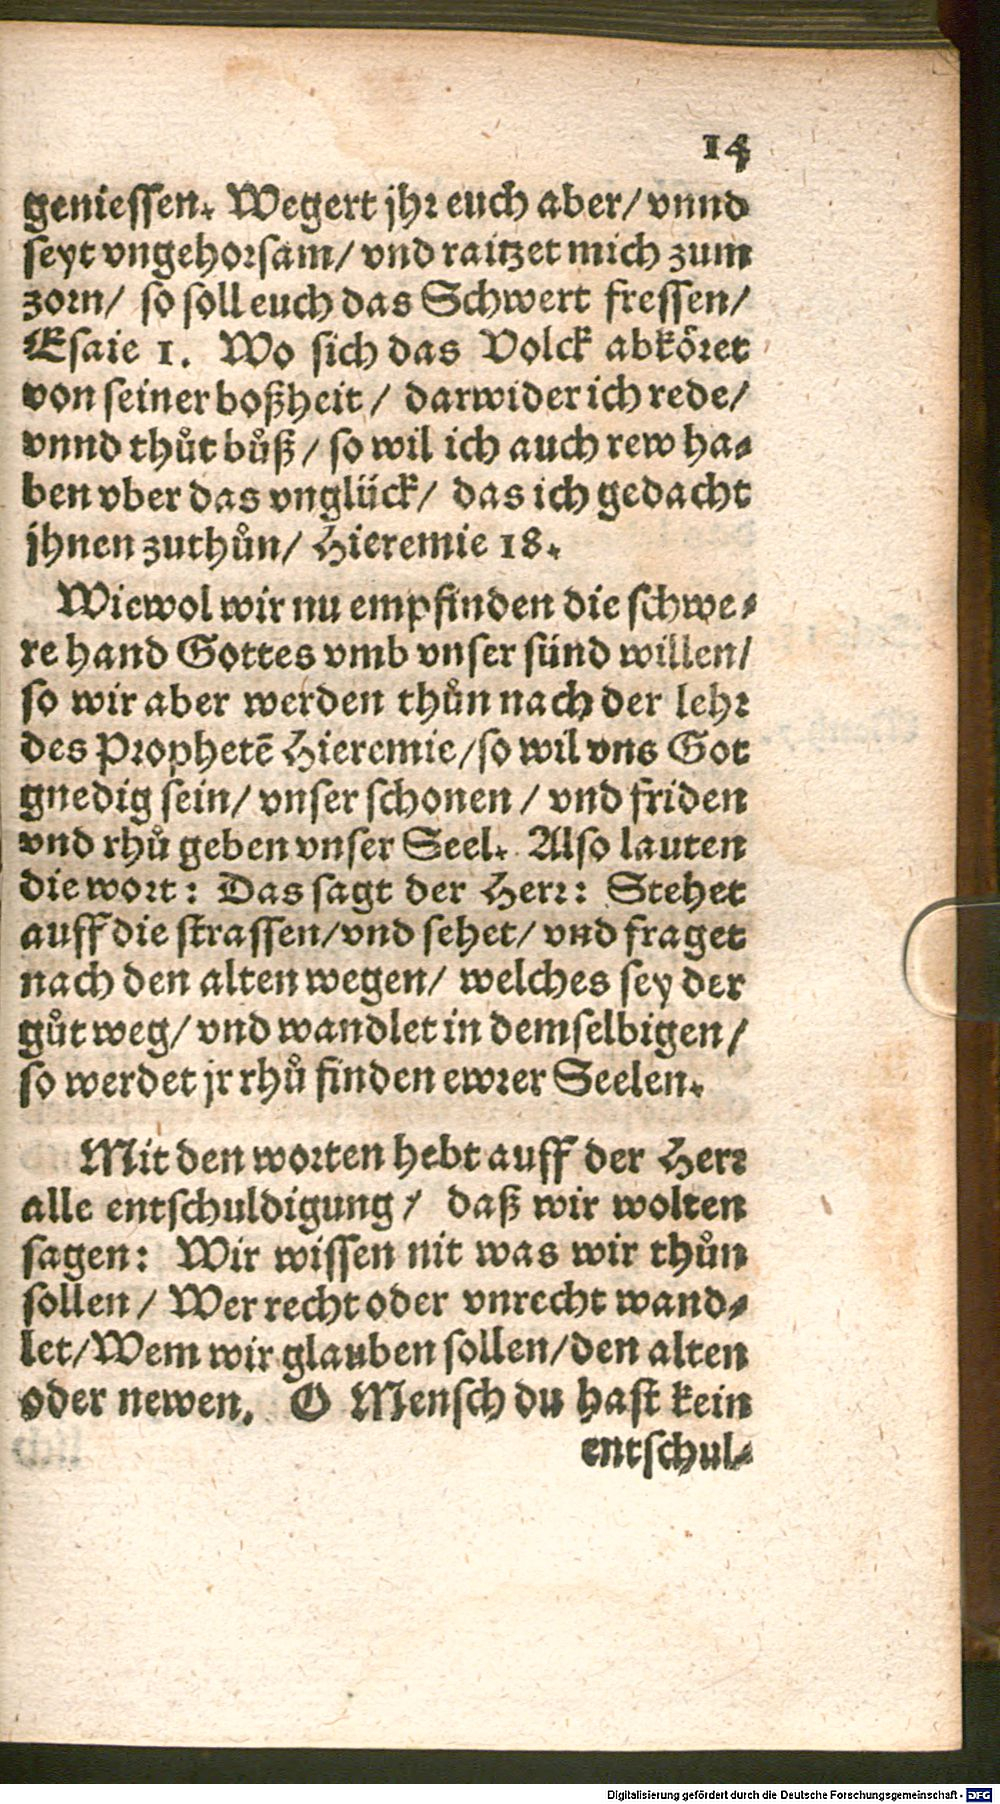 14
geniessen. Wegert jhr euch aber/ vnnd
seyt vngehorsam/ vnd raitzet mich zum
zorn/ so soll euch das Schwert fressen/
Esaie 1. Wo sich das Volck abköret
von seiner boßheit/ darwider ich rede/
vnnd thůt bůß/ so wil ich auch rew ha-
ben vber das vnglück/ das ich gedacht
jhnen zuthůn/ Hieremie 18.
Wiewol wir nu empfinden die schwe-
re hand Gottes vmb vnser sünd willen/
so wir aber werden thůn nach der lehr
des Prophetē Hieremie/so wil vns Got
gnedig sein/ vnser schonen/ vnd friden
vnd rhů geben vnser Seel. Also lauten
die wort: Das sagt der Herr: Stehet
auff die strassen/vnd sehet/ vnd fraget
nach den alten wegen/ welches sey der
gůt weg/ vnd wandlet in demselbigen/
so werdet jr rhů finden ewrer Seelen.
Mit den worten hebt auff der Herr
alle entschuldigung/ daß wir wolten
sagen: Wir wissen nit was wir thůn
sollen/ Wer recht oder vnrecht wand-
let/Wem wir glauben sollen/den alten
oder newen. O Mensch du hast kein
entschul-
Digitalisierung gefördert durch die Deutsche Forschungsgemeinschaft - DFG